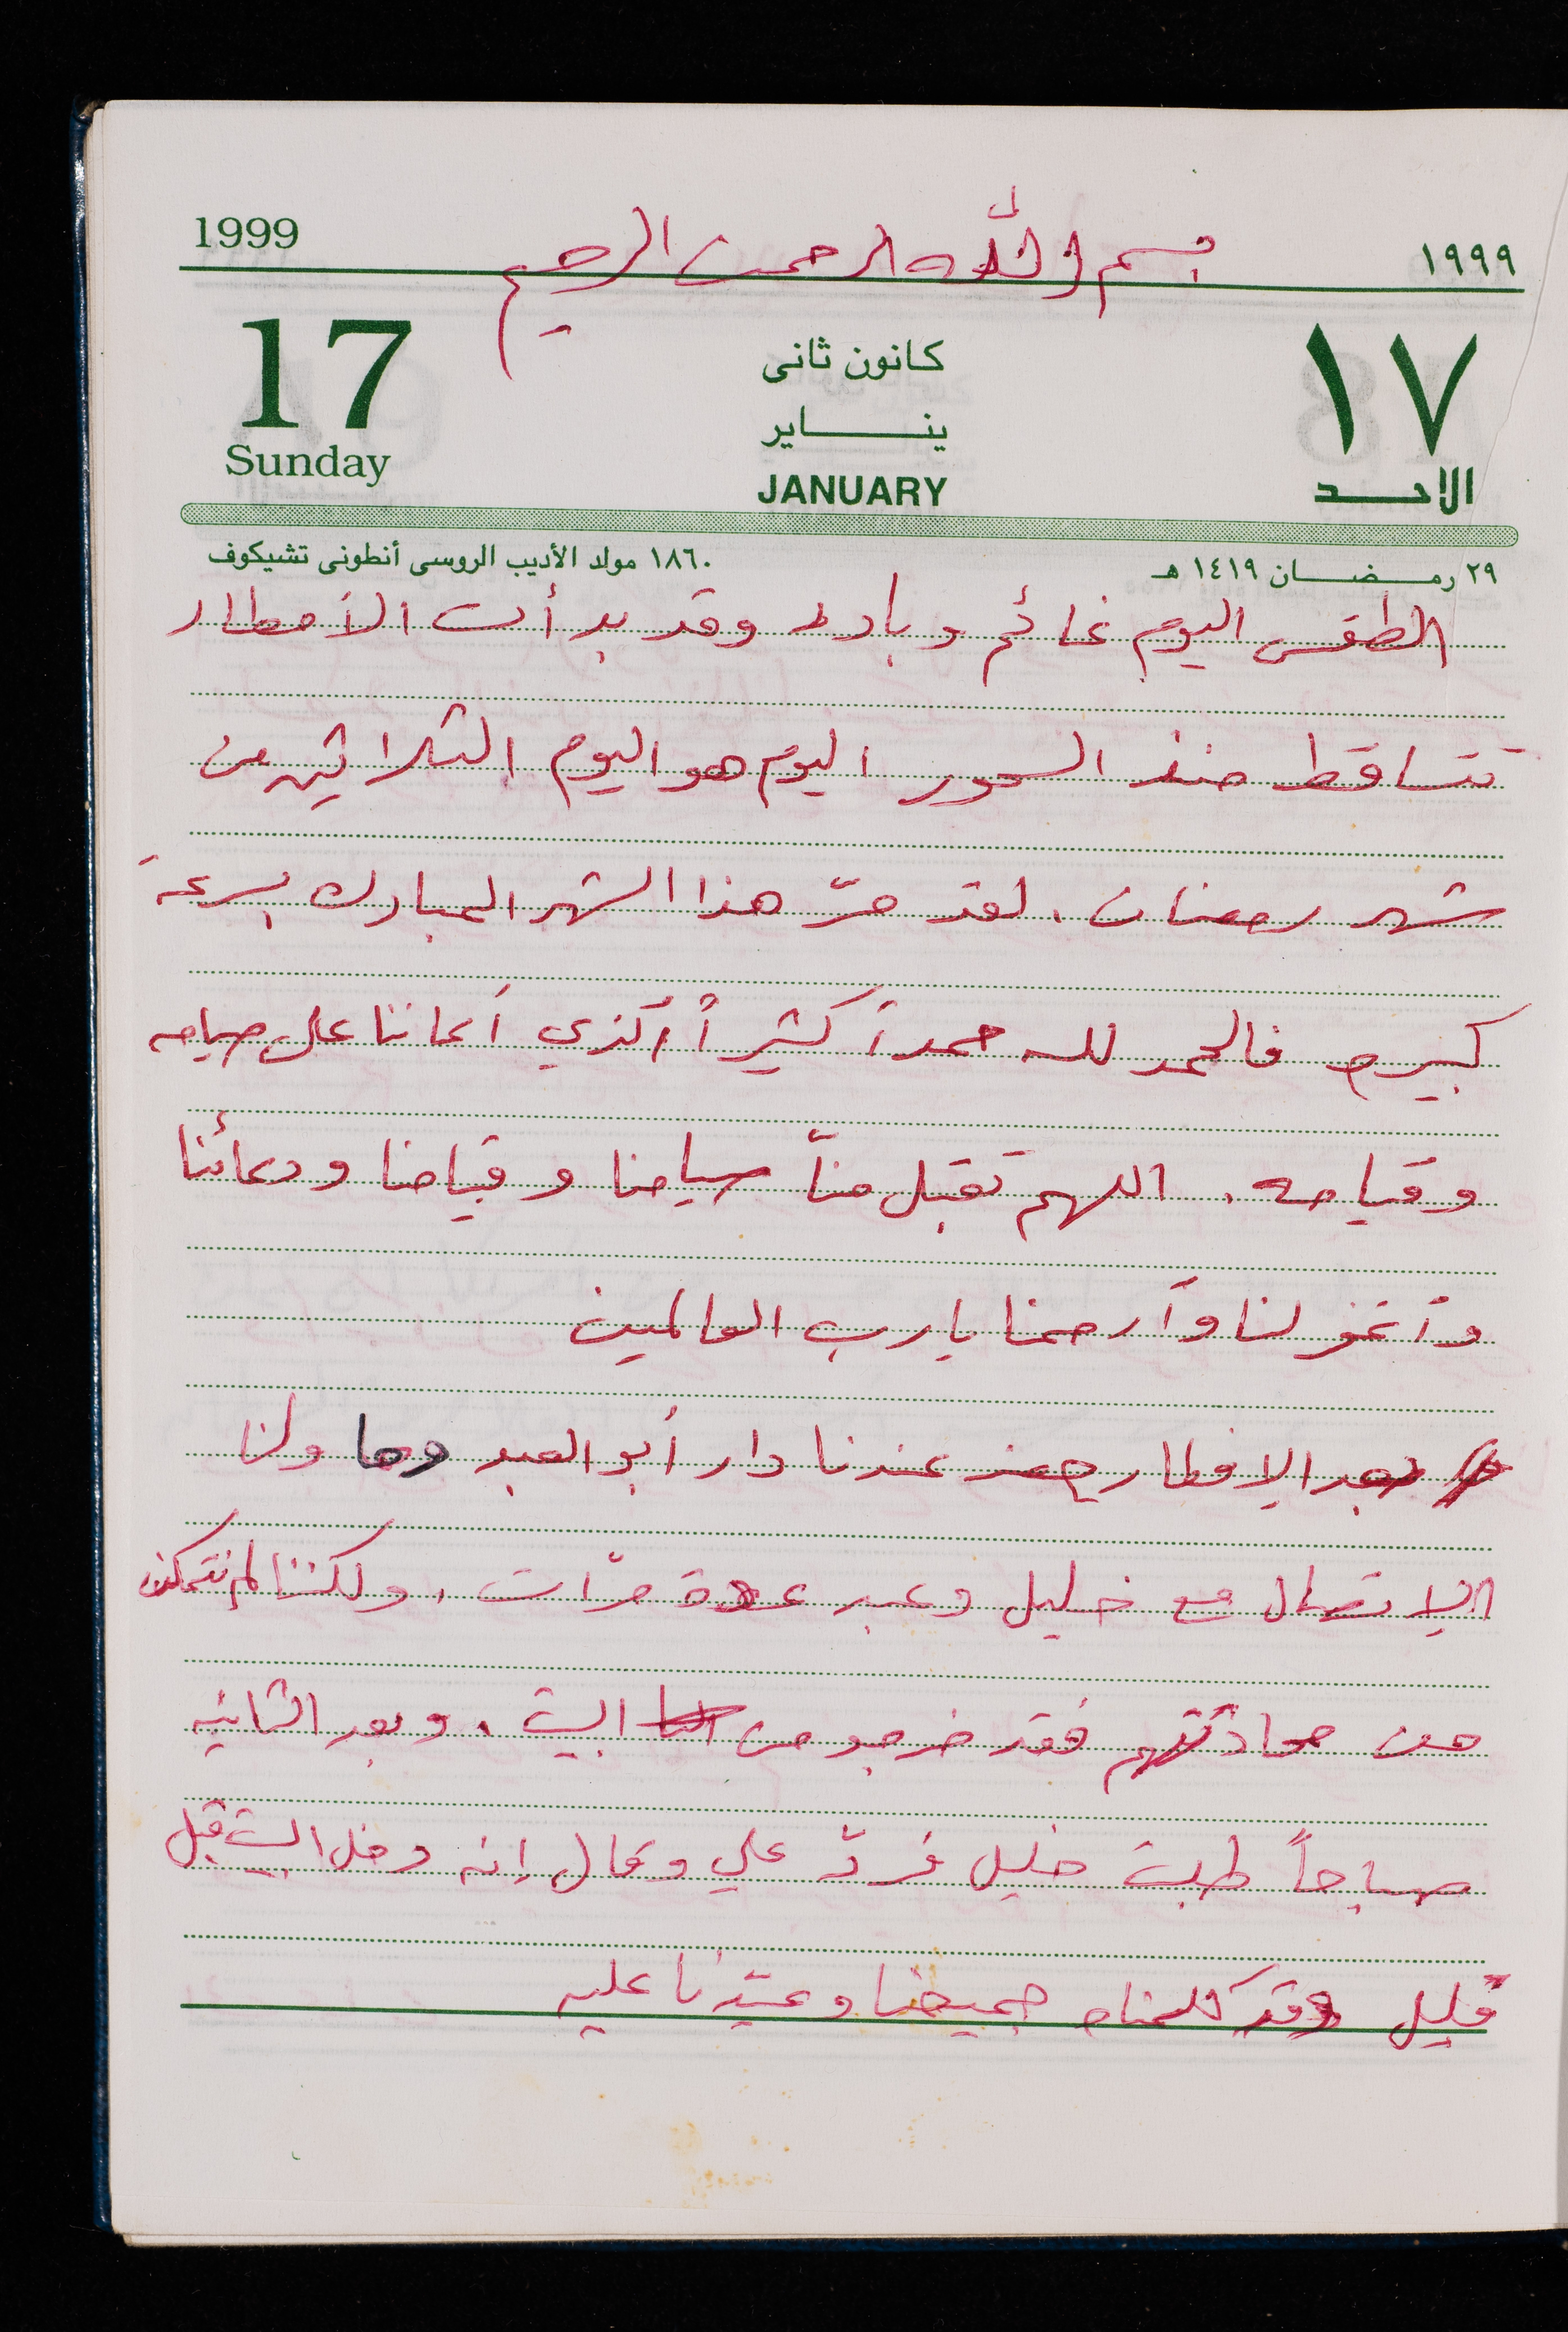 بسم الله الرحمن الرحيم
1999 ١٩٩٩
17 كانون ثانى ١٧
ينـــايـر
Sunday JANUARY الاحـد
٢٩ رمـضـان ١٤١٩ هـ ١٨٦٠ مولد الأديب الروسى أنطونى تشيكوف
الطقس اليوم غائم وبارد وقد بدأت الأمطار
تتساقط منذ السحور اليوم هو اليوم الثلاثين من
شهر رمضان. لقد مرّ هذا الشهر المبارك بسرعة
كبيرة فالحمد لله حمداً كثيراً الذي أعاننا على صيامه
وقيامه. اللهم تقبل منّا صيامنا وقيامنا ودعائنا
وأغفر لنا وأرحمنا يارب العالمين
بعد الإفطار حضر عندنا دار أبو العبد وحاولنا
الإتصال مع خليل وعبر عدة مرّات، ولكننا لم نتمكن
من محادثتهم فقد خرجو من البيت. وبعد الثانيه
صباحاً طلبت خليل فردّ علي وقال إنه دخل البيت قبل
قليل وقد كلمناه جميعنا وعيّدنا عليه